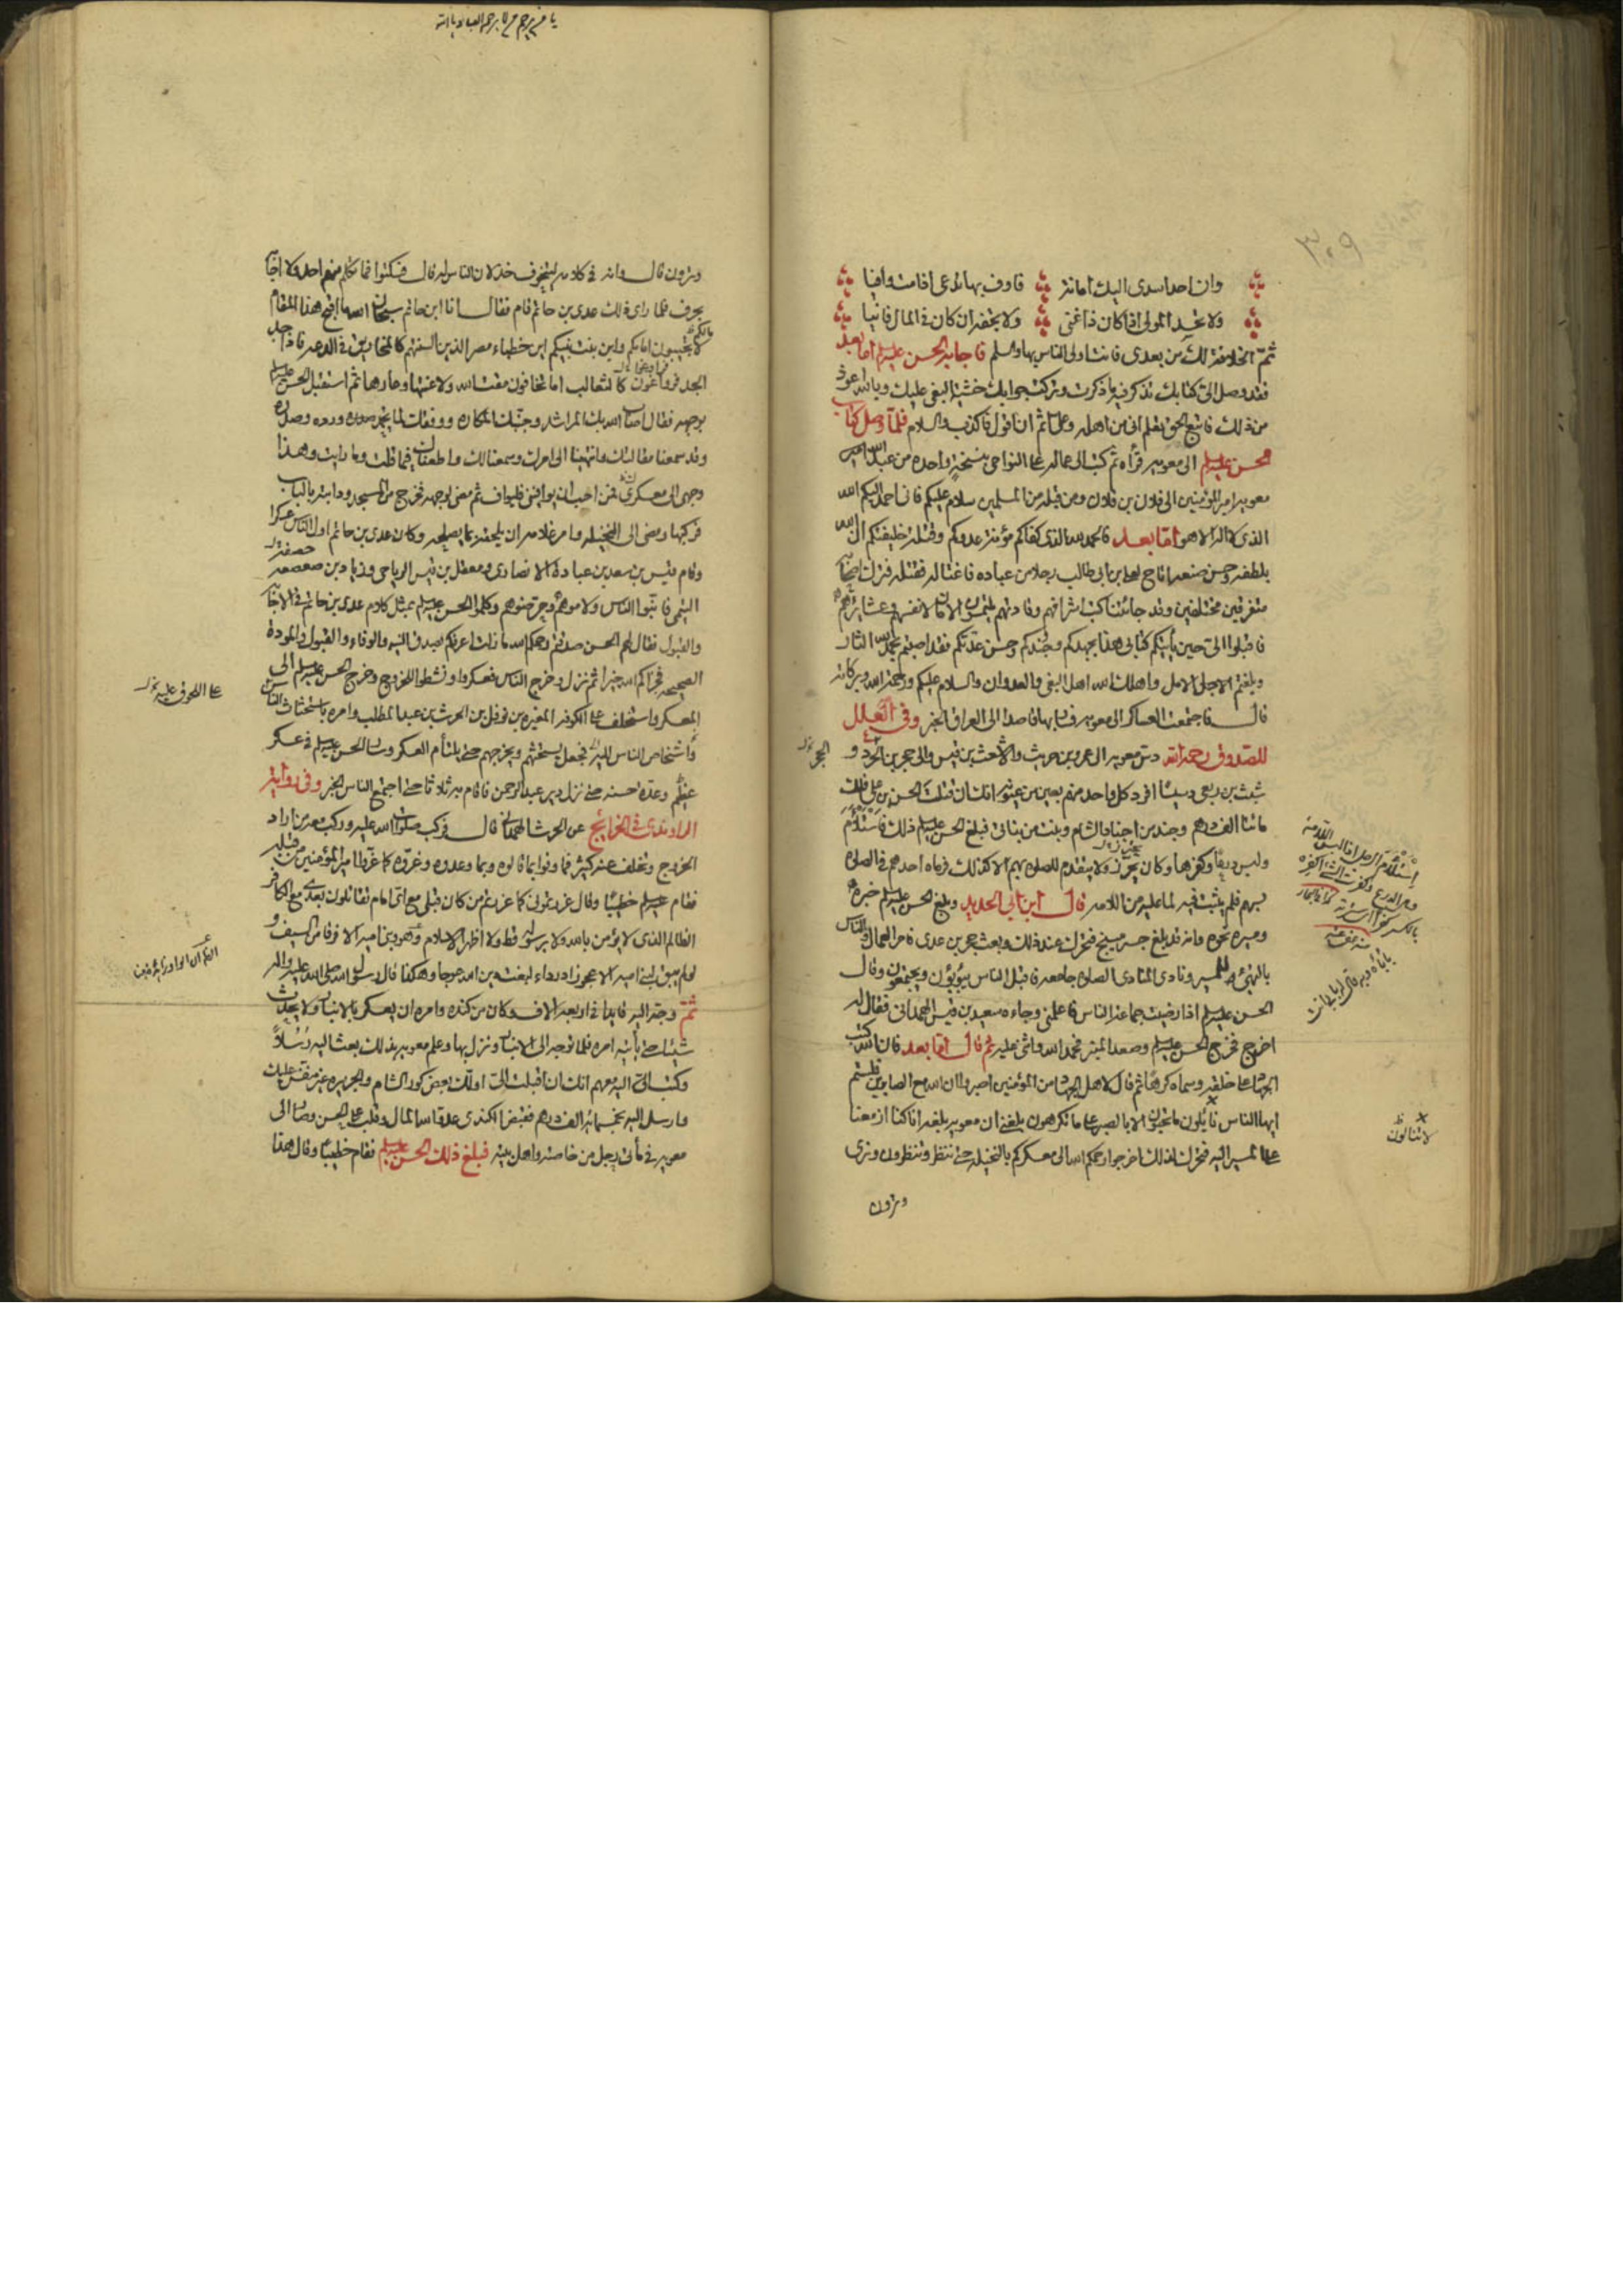 ٣٠٩
وان احد اسدى اليك امانة فاوف بها تدعى اذا مت وافيا
ولا تحسد المولى اذا كان ذا غنى ولا تجفه ان كان في المال فانيا
ثمّ الخلافة لك من بعدى فانت اولى الناس بها والسلم فاجابه الحسن عليه السلم اما بعد
فقد وصل الىّ كتابك تذكر فيه ما ذكرت وتركت جوابك خشية البغى عليك وبالله اعوذ
من ذلك فاتبع الحق تعلم انى من اهله وعلىّ اثم ان اقول فاكذب والسلام فلمّا وصل كتاب
الحسن عليه السلم الى معويه قرأه ثم كتب الى عماله على النواحى بنسخة واحده من عبد الله امير
معويه امير المؤمنين الى فلان بن فلان ومن قبله من المسلمين سلام عليكم فانى احمد اليكم الله
الذى لا اله الا هو امّا بعد فالحمد لله الذى كفاكم مؤنة عدوكم وقتلة خليفتكم انّ الله
بلطفه وحسن صنعه اتاح لعلى بن ابى طالب رجلا من عباده فاغتاله فقتله فترك اصحابه
متفرقين مختلفين وقد جائتنا كتب اشرافهم وقادتهم يلتمسون الامان لانفسهم وعشايرهم
فاقبلوا الىّ حين يأتيكم كتابى هذا بجهدكم وجندكم وحسن عدّتكم فقد اصبتم بحمد الله الثار
وبلغتم الامل واهلك الله اهل البغى والعدوان والسلام عليكم ورحمة الله وبركاته
قال فاجتمعت العساكر الى معويه فسار بها قاصدا الى العراق الخبر وفى العلل
للصدوق رحمه الله دسّ معويه الى عمرو بن حريث والاشعث بن قيس والى حجر بن الحجر و
شبث بن ربعى دسيسا افرد كل واحد منهم بعين من عيونه انك ان قتلت الحسن بن على فلك
مائتا الف درهم وجند من اجناد الشام وبنت من بناتى فبلغ الحسن عليه السلم ذلك فاستلأم
ولبس درعا وكفرها وكان يحترز ولا يتقدم للصلوة بهم الا كذلك فرماه احدهم فى الصلوة
بسهم فلم يثبت فيه لما عليه من اللامه قال ابن ابى الحديد وبلغ الحسن عليه السلم خبره
ومسيره نحوه وانه قد بلغ جسر منبج فتحرك عند ذلك وبعث حجر بن عدى فامر العمال والناس
بالتهيّؤ للمسير ونادى المنادى الصلوة جامعه فاقبل الناس يثوبون ويجتمعون وقال
الحسن عليه السلم اذا رضيت جماعة الناس فاعلمنى وجاءه سعيد بن قيس الهمدانى فقال له
اخرج فخرج الحسن عليه السلم وصعد المنبر فحمد الله واثنى عليه ثم قال امّا بعد فان الله كتب
الجهاد على خلقه وسماه كرهًا ثم قال لاهل الجهاد من المؤمنين اصبروا ان الله مع الصابرين فلستم
ايها الناس نائلون ما تحبون الا بالصبر على ما تكرهون بلغنى ان معويه بلغه انا كنا ازمعنا
على المسير اليه فتحرك لذلك اخرجوا رحمكم الله الى معسكركم بالنخيلة حتى ننظر وتنظرون ونرى
وترون
لا تنالون
يا من يرحم من لا يرحمه العباد يا الله
وترون قال وانه فى كلامه ليتخوف خذلان الناس له قال فسكتوا فما تكلم منهم احد ولا اجابه
بحرف فلما راى ذلك عدى بن حاتم قام فقال انا ابن حاتم سبحان الله ما اقبح هذا المقام
لا تجيبون امامكم وابن بنت نبيكم اين خطباء مصر الذين السنتهم كالمخاريق فى الدعه فاذا جد
الجد فرواغون كالثعالب اما تخافون مقت الله ولا عيبها وعارها ثم استقبل الحسن عليه السلم
بوجهه فقال اصاب الله بك المراشد وجنّبك المكاره ووفقك لما يحمد وروده وصدوره
وقد سمعنا مقالتك وانتهينا الى امرك وسمعنا لك واطعناك فيما قلت وما رايت وهذا
وجهى الى معسكرى فمن احب ان يوافينى فليواف ثم مضى لوجهه فخرج من المسجد ودابته بالباب
فركبها ومضى الى النخيله وامر غلامه ان يلحقه بما يصلحه وكان عدى بن حاتم اول الناس عسكرا
وقام قيس بن سعد بن عبادة الانصارى ومعقل بن قيس الرياحى وزياد بن صعصعه
التيمى فانبّوا الناس ولاموهم وحرّضوهم وكلموا الحسن عليه السلم بمثل كلام عدى بن حاتم فى الاجابة
والقبول فقال لهم الحسن صدقتم رحمكم الله ما زلت اعرفكم بصدق النيه والوفاء والقبول والمودة
الصحيحه فجزاكم الله خيرا ثم نزل وخرج الناس فعسكروا ونشطوا للخروج وخرج الحسن عليه السلم الى
المعسكر واستخلف على الكوفه المغيره بن نوفل بن الحرث بن عبد المطلب وامره باستحثاث الناس
واشخاص الناس اليه فجعل يستحثهم ويخرجهم حتى يلتأم العسكر وسار الحسن عليه السلم فى عسكر
عظيم وعدّة حسنه حتى نزل دير عبد الرحمن فاقام به ثلاثا حتى اجتمع الناس الخبر وفى رواية
الراوندى فى الخرائج عن الحرث الهمدانى قال فركب صلوات الله عليه وركب معه من اراد
الخروج وتخلف عنه كثير فما وفوا بما قالوه وبما وعدوه وغرّوه كما غرّوا امير المؤمنين من قبله
فقام عليه السلم خطيبًا وقال غررتمونى كما غررتم من كان قبلى مع اىّ امام تقاتلون بعدى مع الكافر
الظالم الذى لا يؤمن بالله ولا برسوله قط ولا اظهر الاسلام وهو وبنى اميه الا فرقا من السيف و
لو لم يبق لبنى اميه الا عجوز درداء لبغت دين الله عوجا وهكذا قال رسول الله صلى الله عليه واله
ثمّ وجّه اليه قايدا فى اربعه الاف وكان من كنده وامره ان يعسكر بالانبار ولا يحدث
شيئا حتى يأتيه امره فلما توجه الى الانبار ونزل بها وعلم معويه بذلك بعث اليه رُسُلاً
وكتب اليه معهم انك ان اقبلت الىّ اولّك بعض كور الشام والجزيره غير منفس عليك
وارسل اليه بخمسمائه الف درهم فقبض الكندى عدو الله المال وقلب على الحسن وصار الى
معويه فى مأتى رجل من خاصته واهل بيته فبلغ ذلك الحسن عليه السلم فقام خطيبًا وقال هذا